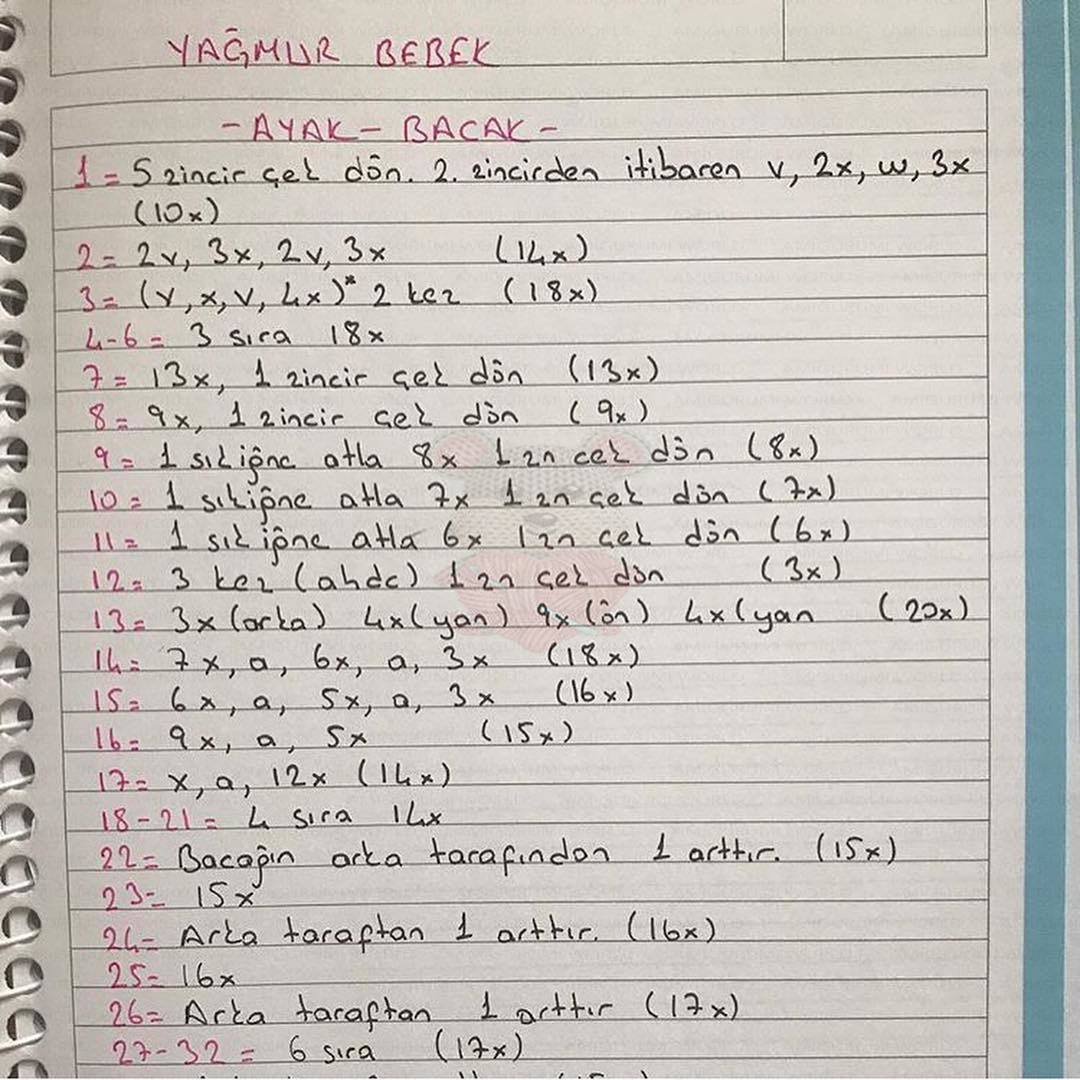 YAĞMUR BEBEK
- AYAK - BACAK -
1 = 5 zincir çek dön. 2. zincirden itibaren v, 2x, w, 3x
(10x)
2 = 2v, 3x, 2v, 3x (14x)
3 = (v, x, v, 4x)* 2 kez (18x)
4-6 = 3 sıra 18x
7 = 13x, 1 zincir çek dön (13x)
8 = 9x, 1 zincir çek dön (9x)
9 = 1 sık iğne atla 8x 1 zn çek dön (8x)
10 = 1 sık iğne atla 7x 1 zn çek dön (7x)
11 = 1 sık iğne atla 6x 1 zn çek dön (6x)
12 = 3 kez (ahdc) 1 zn çek dön (3x)
13 = 3x (arka) 4x (yan) 9x (ön) 4x (yan (20x)
14 = 7x, a, 6x, a, 3x (18x)
15 = 6x, a, 5x, a, 3x (16x)
16 = 9x, a, 5x (15x)
17 = x, a, 12x (14x)
18-21 = 4 sıra 14x
22 = Bacağın arka tarafından 1 arttır. (15x)
23 = 15x
24 = Arka taraftan 1 arttır. (16x)
25 = 16x
26 = Arka taraftan 1 arttır (17x)
27-32 = 6 sıra (17x)